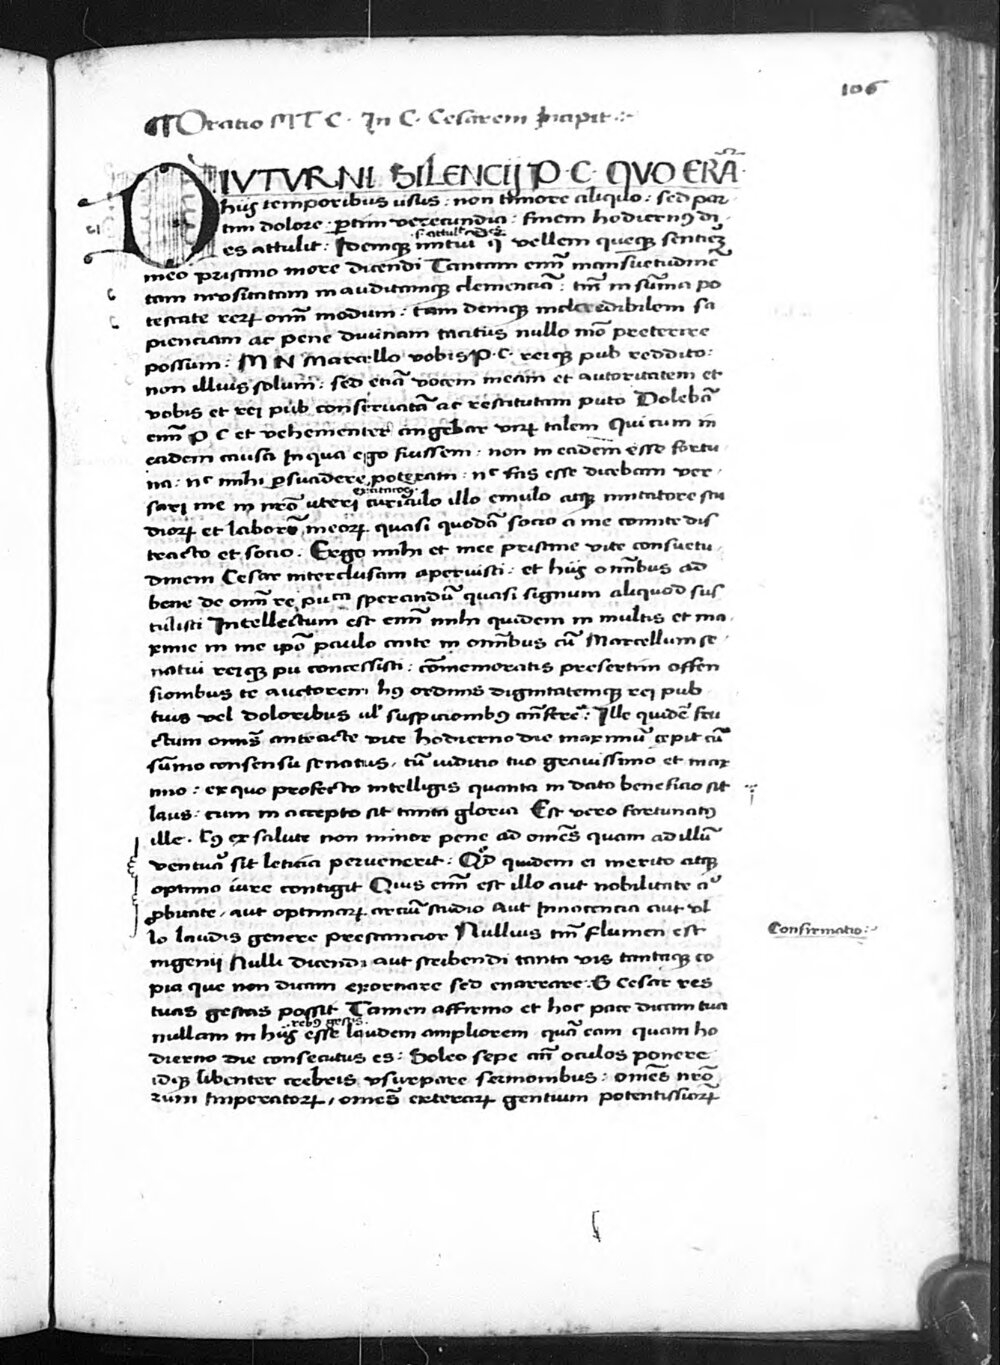 106
Oratio M T C. In C. Cesarem Incipit
DIVTVRNI SILENCIJ P. C. QVO ERÃ
hijs temporibus usus: non timore aliquo: sed par
tim dolore. ꝑtim verecundia: finem hodiernꝰ di
es attulit: Idemqꝫ initiũ q̃ vellem queqꝫ sentirẽ
meo pristino more dicendi Tantam enĩ mansuetudinẽ
tam inusitatam inauditamqꝫ clemenciã: tm̃ in sum̃a po
testate rerꝝ om̃ modum: tam deniqꝫ incredibilem sa
pienciam ac pene divinam tacitus nullo mõ preterire
possum: M N Marcello vobis P. C. reiqꝫ pub reddito:
non illius solum: sed etiã vocem meam et autoritatem et
vobis et rei pub conservatã ac restitutam puto Dolebã
enĩ P C et vehementer angebar virꝝ talem Qui cum in
eadem causa In qua ego fuissem: non in eadem esse fortu
na: nᶜ mihi ꝑsuadere poteram: nᶜ fas esse dicebam ver
sari me in nrõ veteri curriculo illo emulo atqꝫ imitatore stu
dioꝝ et laborũ meoꝝ quasi quodã socio a me comite dis
tracto et socio. Ergo mihi et mee pristine vite consuetu
dinem Cesar interclusam aperuisti: et hijs om̃ibus ad
bene de om̃i re puca sperandũ quasi signum aliquod sus
tulisti Intellectum est enĩ mihi quidem in multis et ma
xime in me ipõ paulo ante in om̃ibus cũ Marcellum se
natui reiqꝫ pu concessisti: cõmemoratis presertim offen
sionibus te auctorem hꝰ ordinis dignitatemqꝫ rei pub
tuis vel doloribus ul' suspicionibꝰ anferre: Ille quidẽ fru
ctum omnis anteacte vite hodierno die maximũ cepit cũ
sũmo consensu senatus, tũ iuditio tuo gravissimo et max
imo: ex quo profecto intelligis quanta in dato beneficio sit
laus: cum in accepto sit tanta gloria Est vero fortunatꝰ
ille. Cꝰ ex salute non minor pene ad omẽs quam ad illũ
ventuã sit leticia pervenerit: Qđ quidem ei merito atqꝫ
optimo iure contigit Quis enĩ est illo aut nobilitate aᵗ
ꝓbitate, aut optimaꝝ arcium studio Aut Innocencia aut ul
lo laudis genere prestancior Nullius tm̃ flumen est
ingenij Nulli dicendi aut scribendi tanta vis tantaqꝫ co
pia que non dicam exornare sed enarrare. G Cesar res
tuas gestas possit Tamen affirmo et hoc pace dicam tua
nullam in hijs rebꝰ gestis esse laudem ampliorem quã eam quam ho
dierno die consecutus es: Soleo sepe añ oculos ponere
idqꝫ libenter crebris usurpare sermonibus: omẽs nrõ
rum Imperatoꝝ, omẽs exteraꝝ gentium potentissioꝝ
Confirmatio: